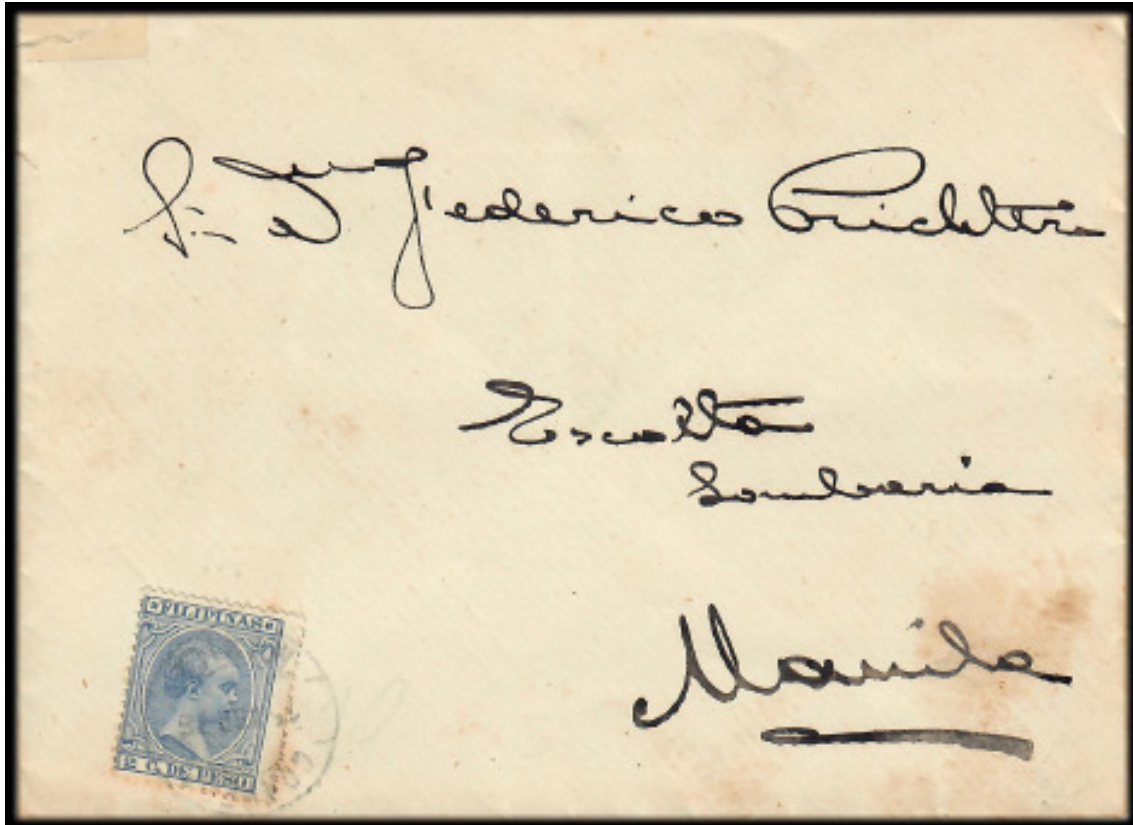 Sr. Dn Federico Prichter
Escolta
Sombreria
Manila
*FILIPINAS*
2 C. DE PESO